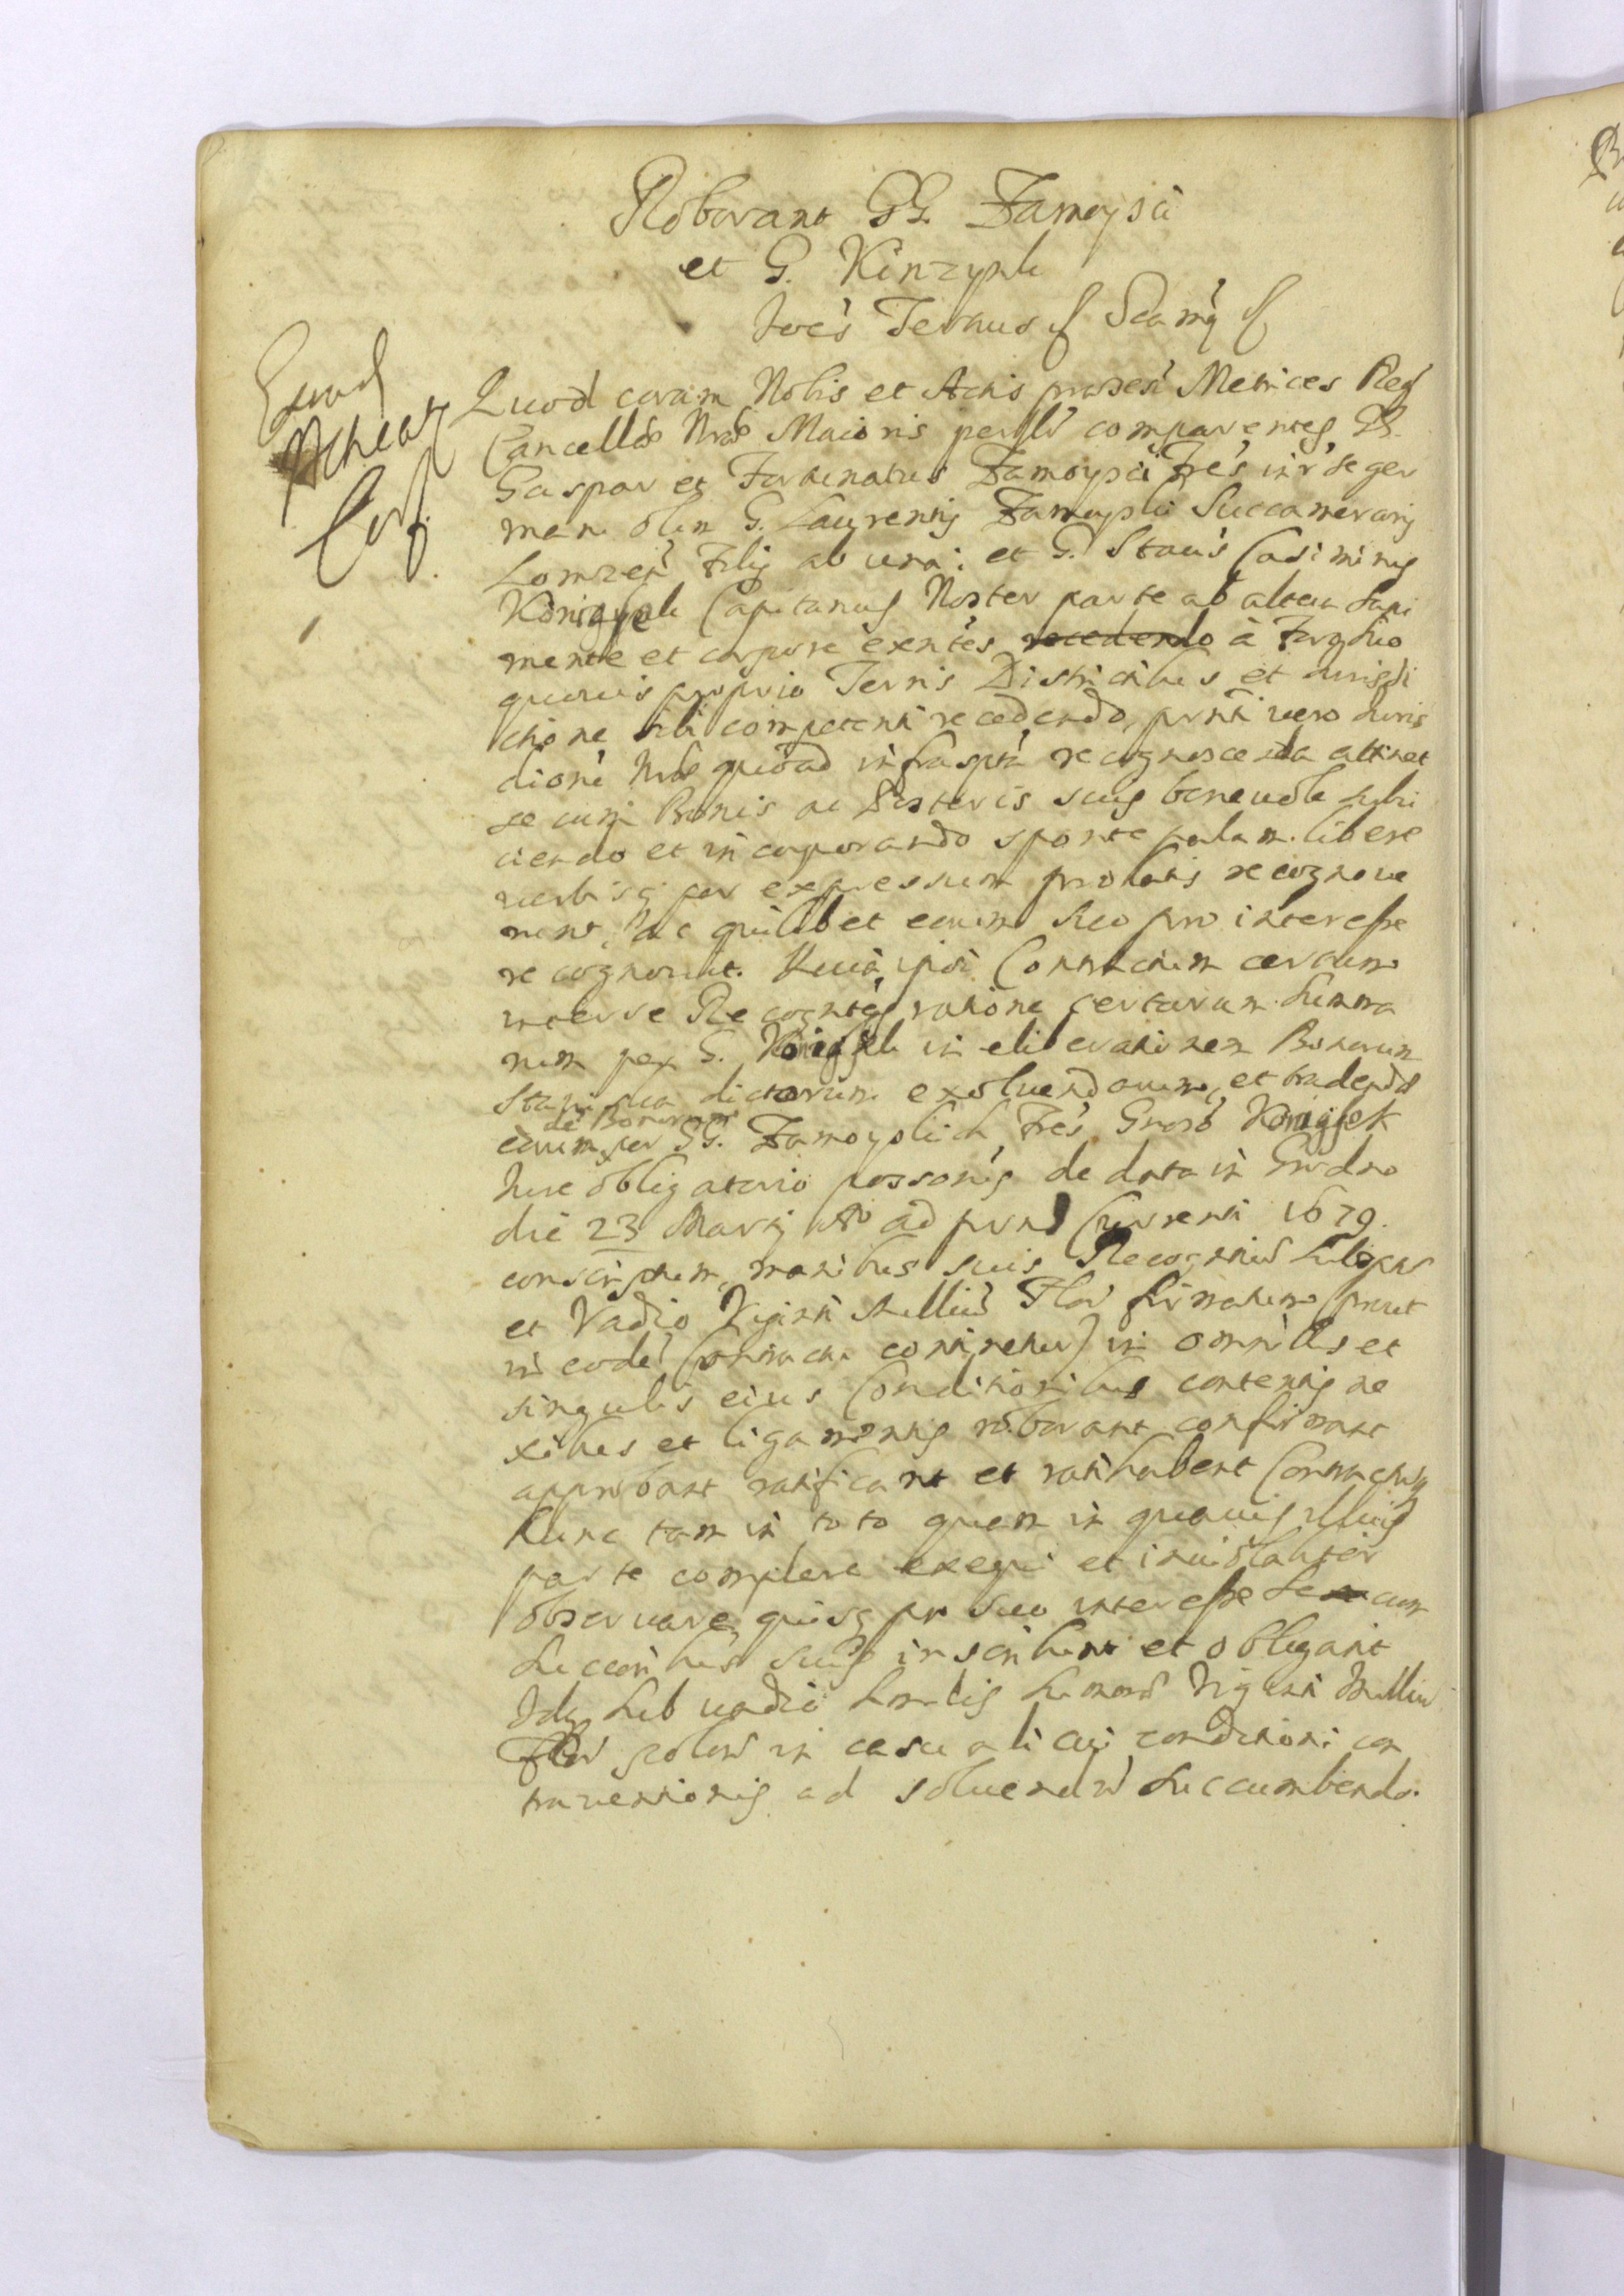 Roborant GG. Zamoysci
et G. Kinzypk
Joës Tertius Seu mq
Quod coram Nobis et Actis praesen Metrices Reg
Cancellae Nrae Maioris persolr comparentes, GG.
Gaspar et Fortunatus Zamoysci Frēs inr se ger
mani olim G. Laurentij Zamoyski Succamerarij
Lomzen Filij ab una: et G. Staūs Casimirus
Capitaneus Noster parte ab altera sani
mente et corpore exntēs recedendo à Foro suo
quouis proprio Terris Districtibus et iurisdi
ctione sibi competenti recedendo, prnti vero iuris
dioni Nrae quoad infraspta recognoscenda attinet
se cum Bonis ac Posteris suis beneuole subij
ciendo et incorporando sponte palam libere
verbisq per expressum prolatis recognoue
runt, ac quilibet eorum suo pro interesse
recognouit. Quia ipsi Contractum certum
inter se Recogntēs ratione certarum Summa
rum per G. in eliberationem Bonorum
dictorum exoluendarum, et tradenda
de Bonorum
eorum per GG. Zamoyskich Frēs Gnoso
Iure obligatorio possonis de data in Grodno
die 23 Martij Ao ad prns Currenti 1679.
conscriptum, manibus suis Recogntiū subscrip
et Vadio Viginti Milliū Flor firmatum prout
in eodē Contractu continetur) in omnibus et
singulis eius Conditionibus contentis ne
xibus et ligamentis roborant confirmant
approbant ratificant et ratihabent Contractuq
hunc tam in toto quam in quauis illius
parte complere exequi et inuiolabiter
obseruare, quisq pr suo interesse se cum
Succoribus suis inscribunt et obligant
Idq sub vadio similis Summae Viginti Milliū
Flor polon in casu alicui conditioni con
trauentionis ad soluendū succumbendo.